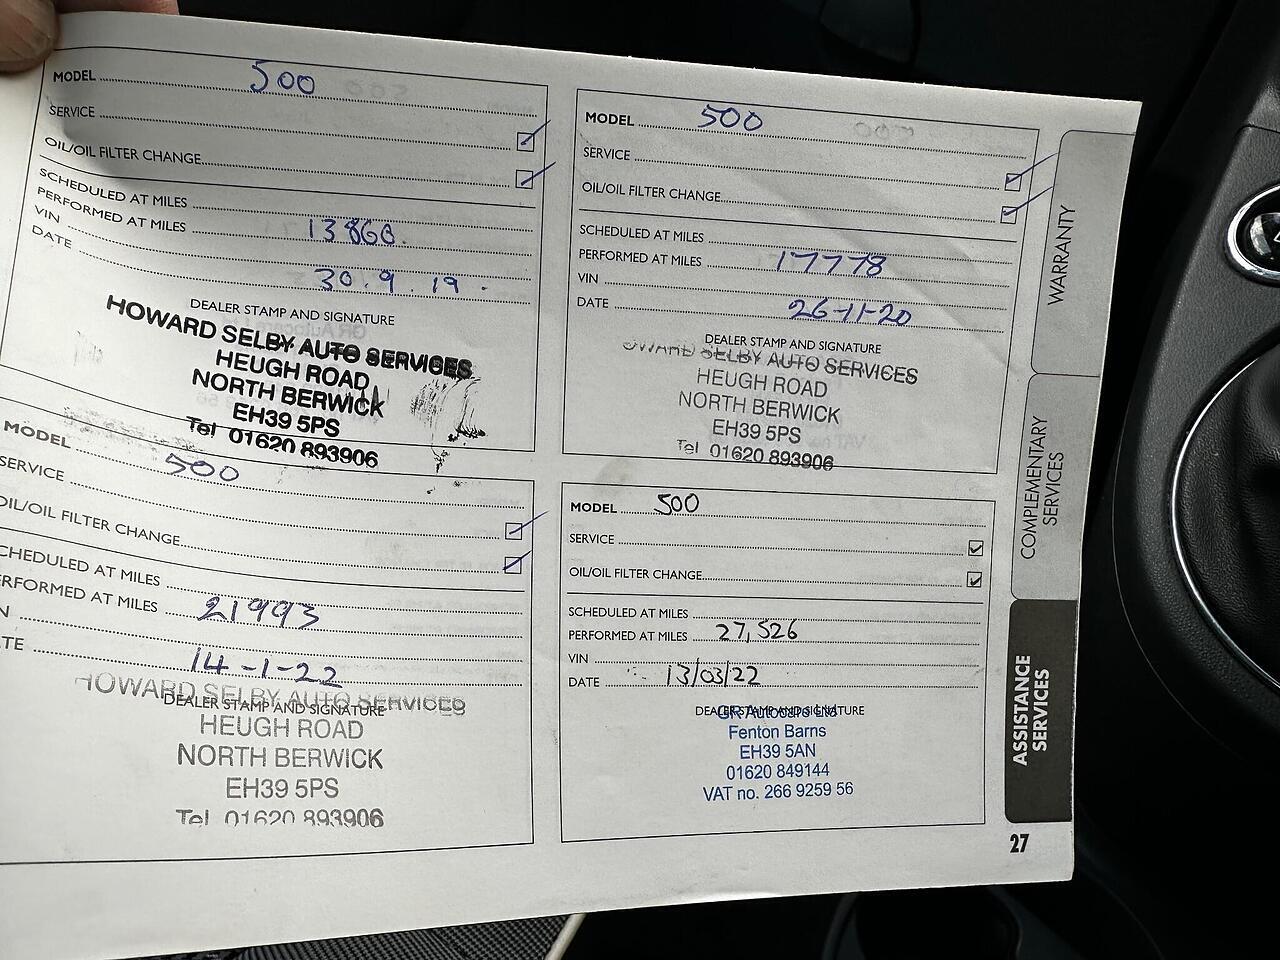 MODEL 500
SERVICE
OIL/OIL FILTER CHANGE
SCHEDULED AT MILES
PERFORMED AT MILES 13868.
VIN
DATE 30.9.19.
DEALER STAMP AND SIGNATURE
HOWARD SELBY AUTO SERVICES
HEUGH ROAD
NORTH BERWICK
EH39 5PS
Tel 01620 893906
MODEL 500
SERVICE
OIL/OIL FILTER CHANGE
SCHEDULED AT MILES
PERFORMED AT MILES 17778
VIN
DATE 26-11-20
DEALER STAMP AND SIGNATURE
OWARD SELBY AUTO SERVICES
HEUGH ROAD
NORTH BERWICK
EH39 5PS
Tel 01620 893906
MODEL 500
SERVICE
OIL/OIL FILTER CHANGE
CHEDULED AT MILES
ERFORMED AT MILES 21993
N
TE 14-1-22
HOWARD SELBY AUTO SERVICES
DEALER STAMP AND SIGNATURE
HEUGH ROAD
NORTH BERWICK
EH39 5PS
Tel 01620 893906
MODEL 500
SERVICE
OIL/OIL FILTER CHANGE
SCHEDULED AT MILES
PERFORMED AT MILES 27,526
VIN
DATE 13/03/22
DEALER STAMP AND SIGNATURE
Ltd
Fenton Barns
EH39 5AN
01620 849144
VAT no. 266 9259 56
WARRANTY
COMPLEMENTARY
SERVICES
ASSISTANCE
SERVICES
27